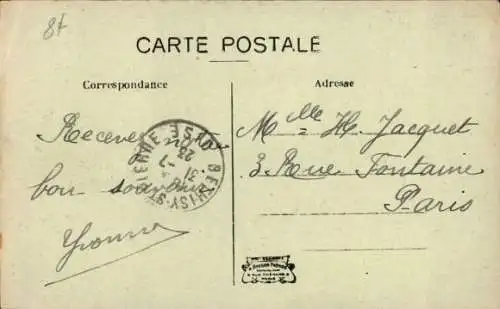 8f
CARTE POSTALE
Correspondance
Adresse
Recevez mon
bon souvenir
Yvonne
Mlle H. Jacquet
3 Rue Fontaine
Paris
BETHISY-ST-PIERRE OISE
31 -7
23